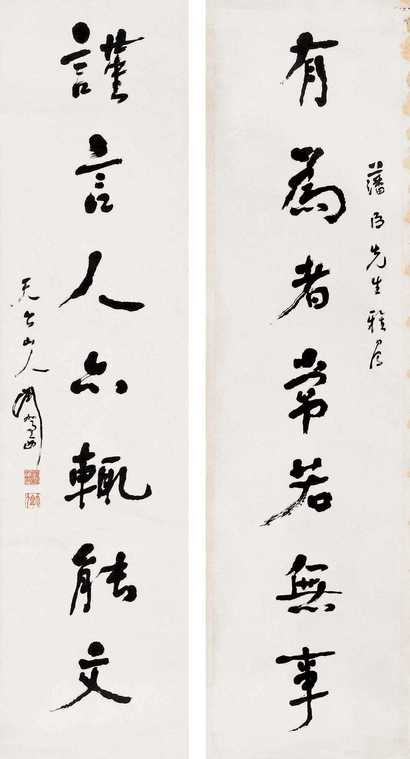 有為者常若無事
藩侯先生雅屬
謹言人亦輒能文
天台山人